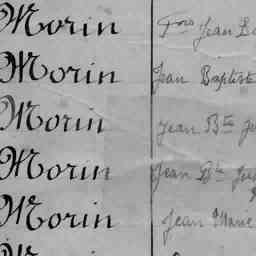 Morin Fois Jean Ba
Morin Jean Baptiste
Morin Jean Bte
Morin Jean Bte
Morin Jean Marie